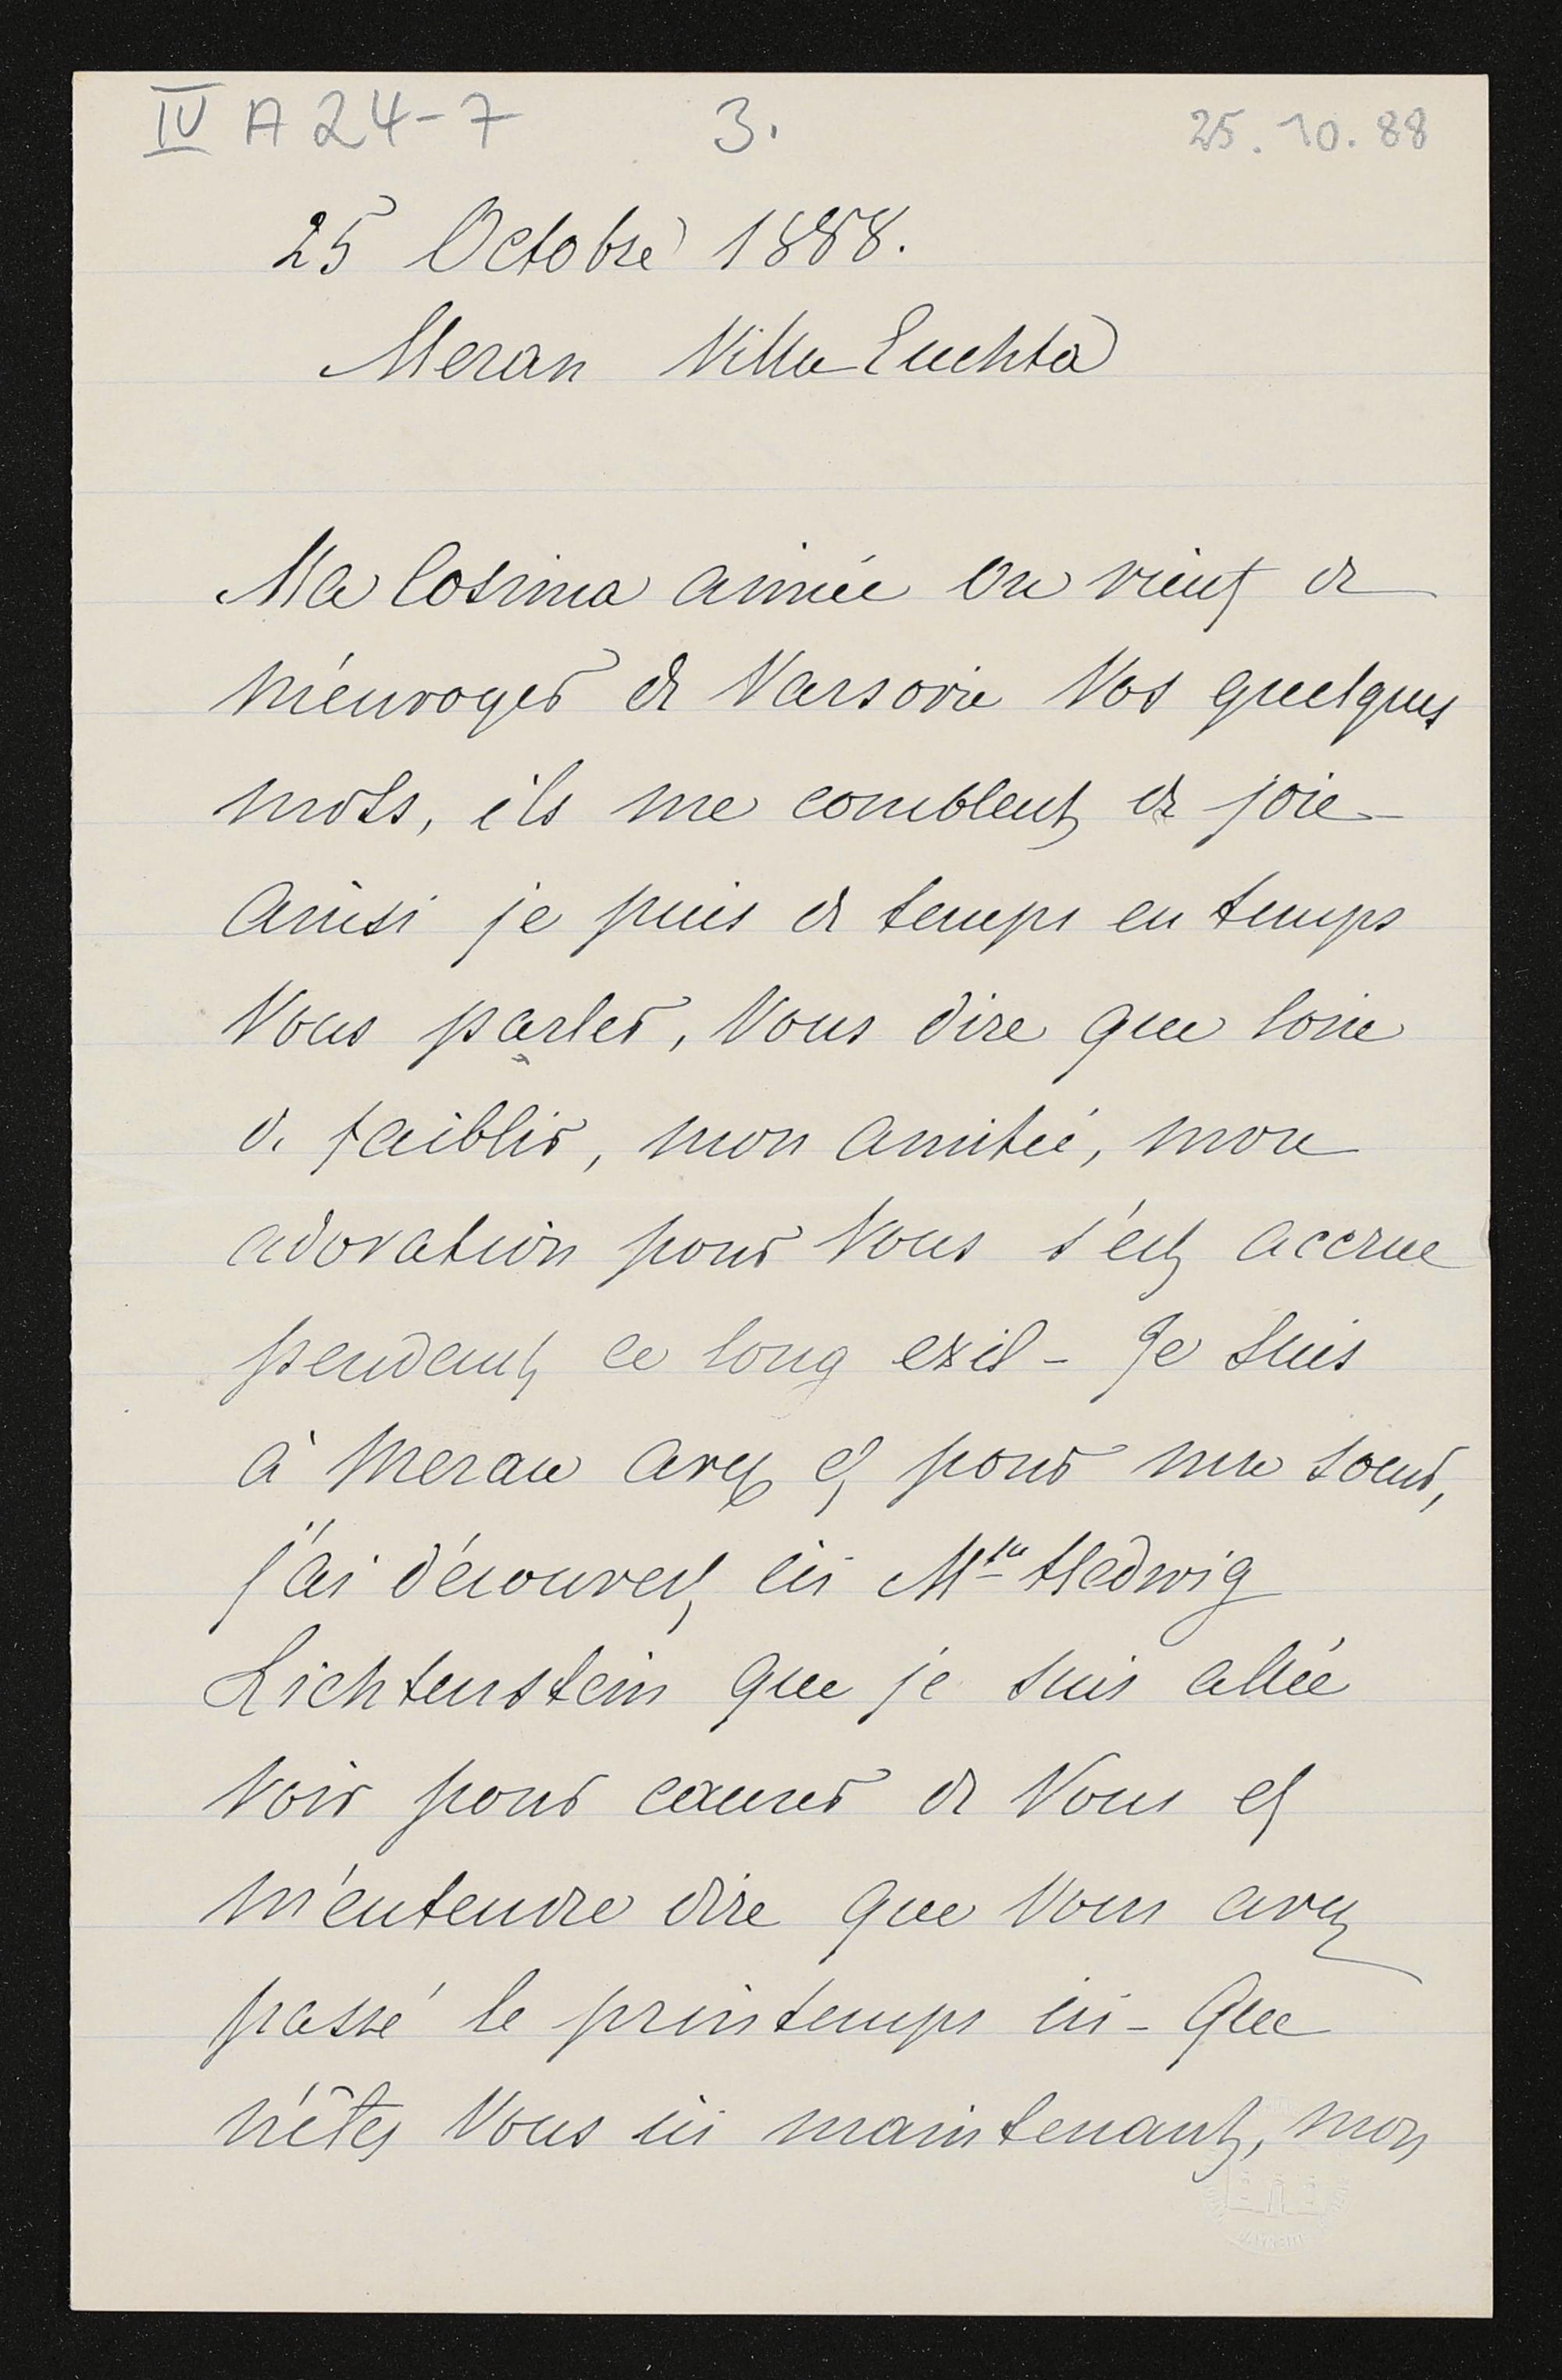 IV A 24-7 3. 25.10.88
25 Octobre 1888.
Meran Villa Luchta
Ma Cosima aimée On vient de
m'envoyer de Varsovie Vos quelques
mots, ils me comblent de joie -
Ainsi je puis de temps en temps
Vous parler, Vous dire que loin
de faiblir, mon amitié, mon
adoration pour Vous s'est accrue
pendant ce long exil - Je suis
à Meran avec et pour ma soeur,
j'ai découvert ici Mme Hedwig
Lichtenstein que je suis allée
voir pour causer de Vous et
m'entendre dire que Vous avez
passé le printemps ici - Que
n'êtes Vous ici maintenant, mon